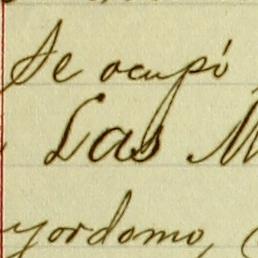 Se ocupó
Las M
yordomo,